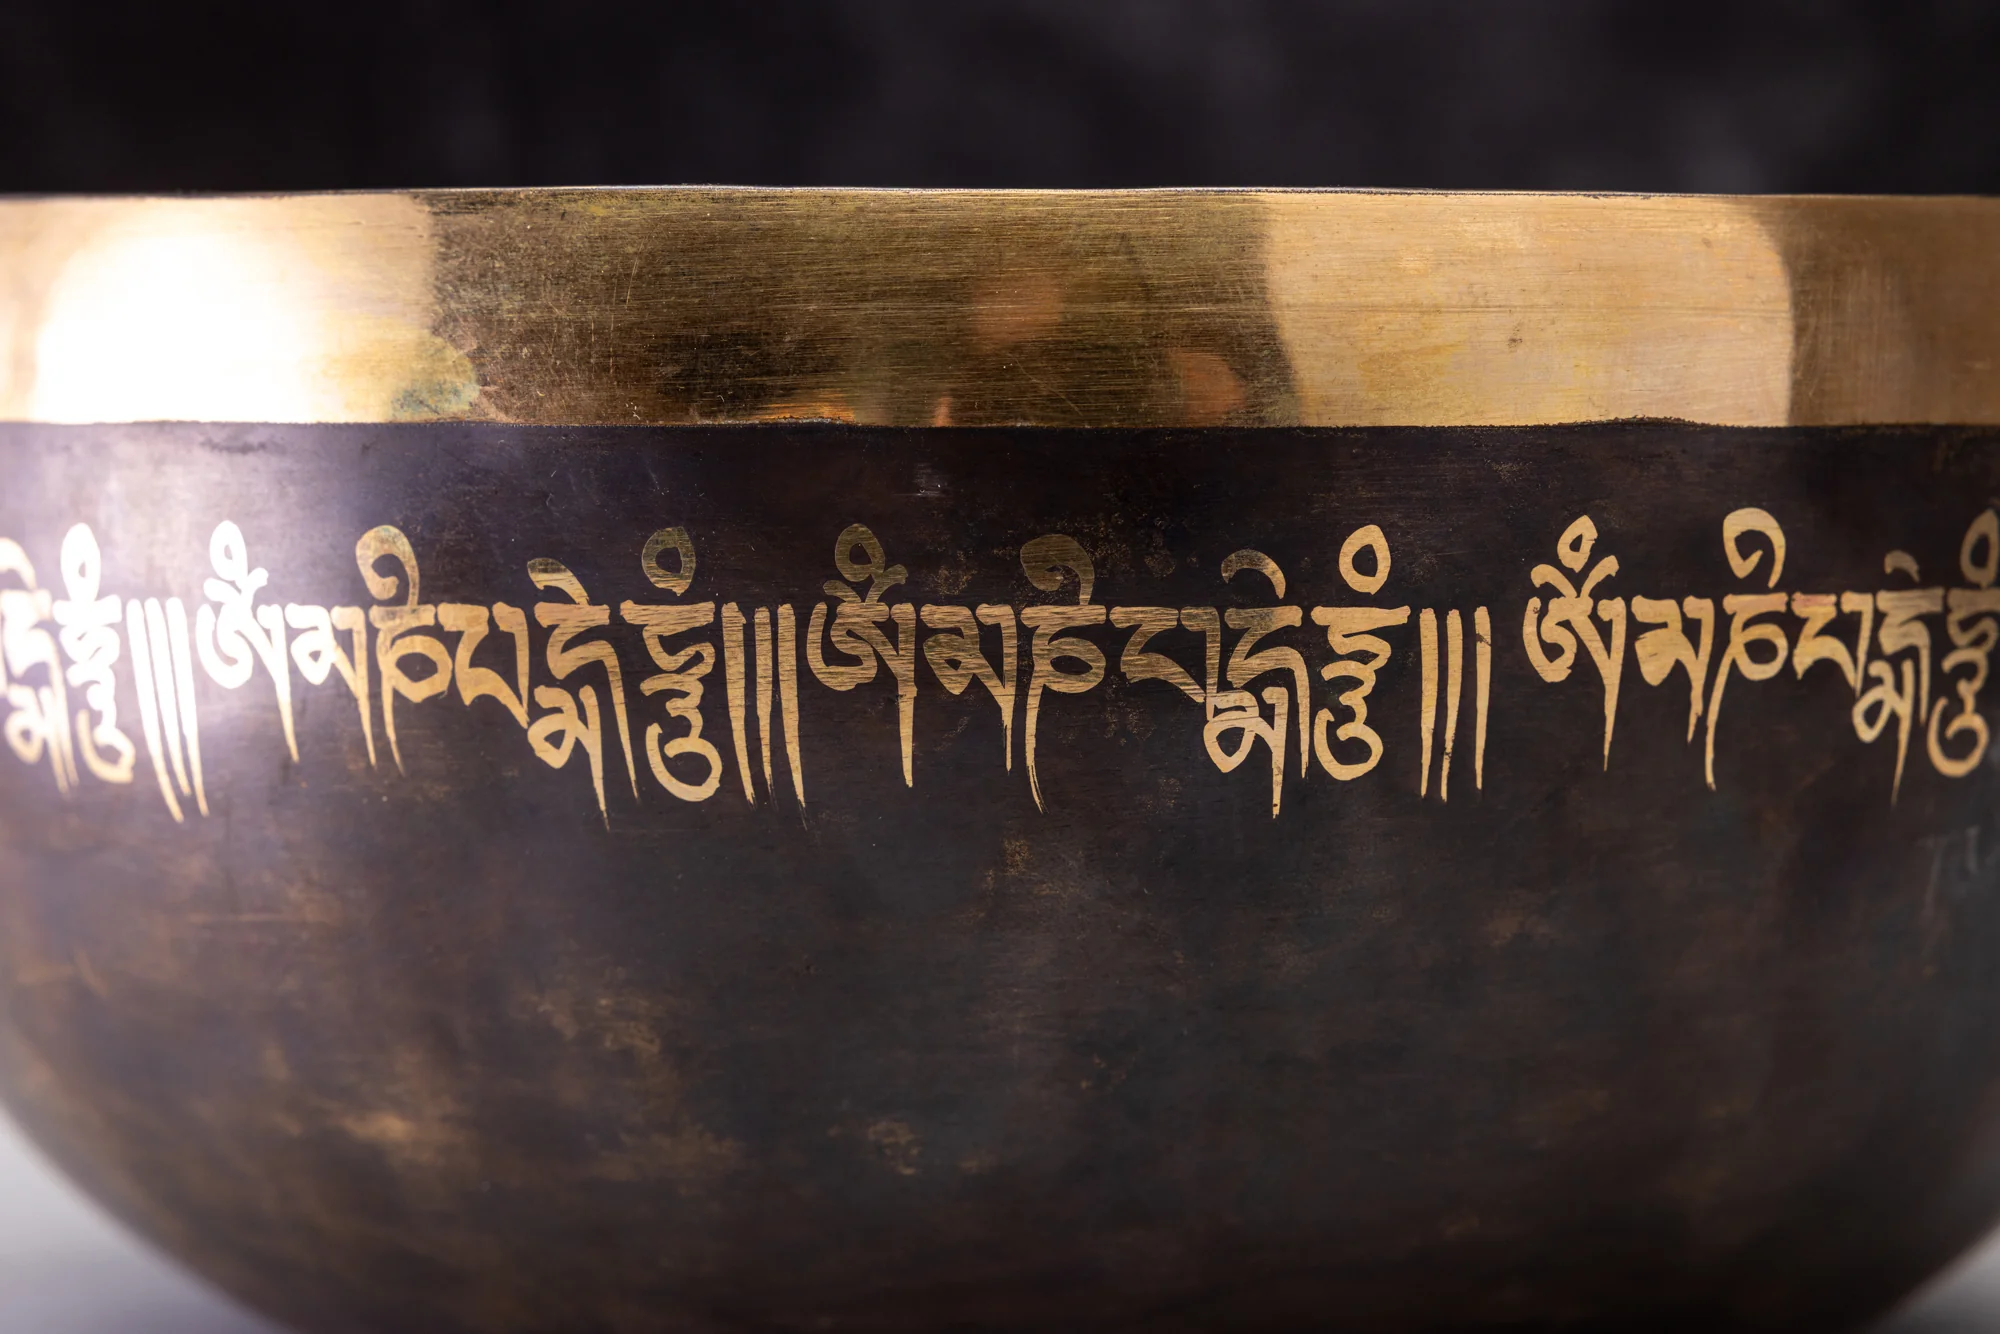 དྨེཧཱུཾ།།།ཨོཾམཎིཔདྨེཧཱུཾ།།།ཨོཾམཎིཔདྨེཧཱུཾ།།། ཨོཾམཎིཔདྨེཧཱུཾ